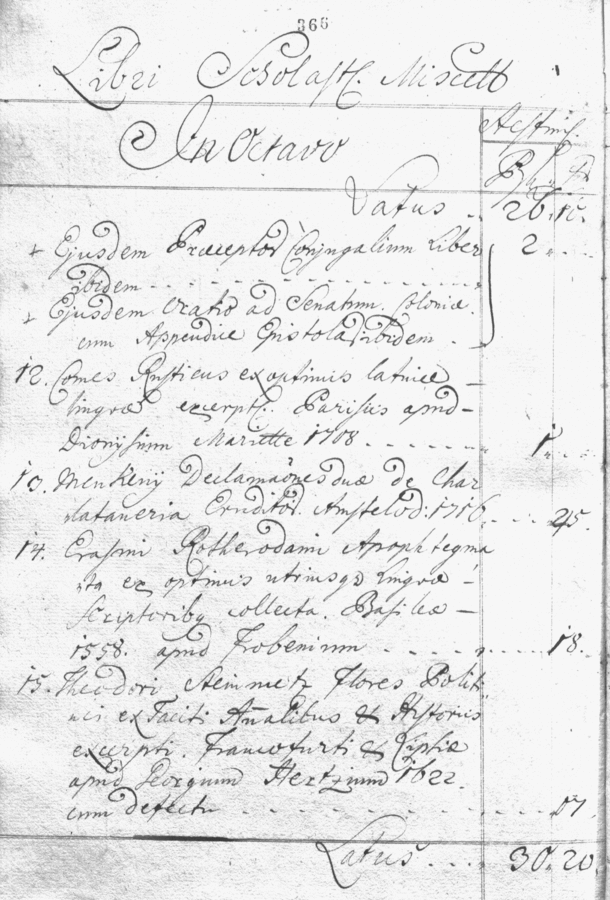 366
Libri Scholast. Miscell
In Octavo
Aestim.
Latus .. 26. 10.
+ Ejusdem Praeceptor Conjugalium Liber 2 ....
ibidem
+ Ejusdem Oratio ad Senatum Coloniae
cum Appendice Epistola ibidem
12. Comes Rusticus ex optimis latinae
linguae excerpt. Parisiis apud
Dionysium Mariette 1708 1 ...
13. Menkenij Declamaones duae de Char
lataneria Eruditor. Amstelod: 1716 .... 45.
14. Erasmi Rotherodami Apophtegma
ta ex optimis utriusq linguae
scriptoribq collecta. Basileae
1558. apud Frobenium .... 18.
15. Theodori Steinmetz flores Politi
ci ex Taciti Analibus & Historiis
excerpti. Francofurti & Lipsiae
apud Georgium Hertzum 1622
cum defectu .... 17
Latus .... 30. 20.